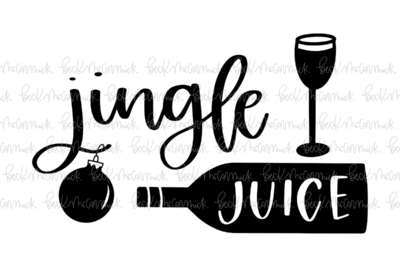 jingle
JUICE